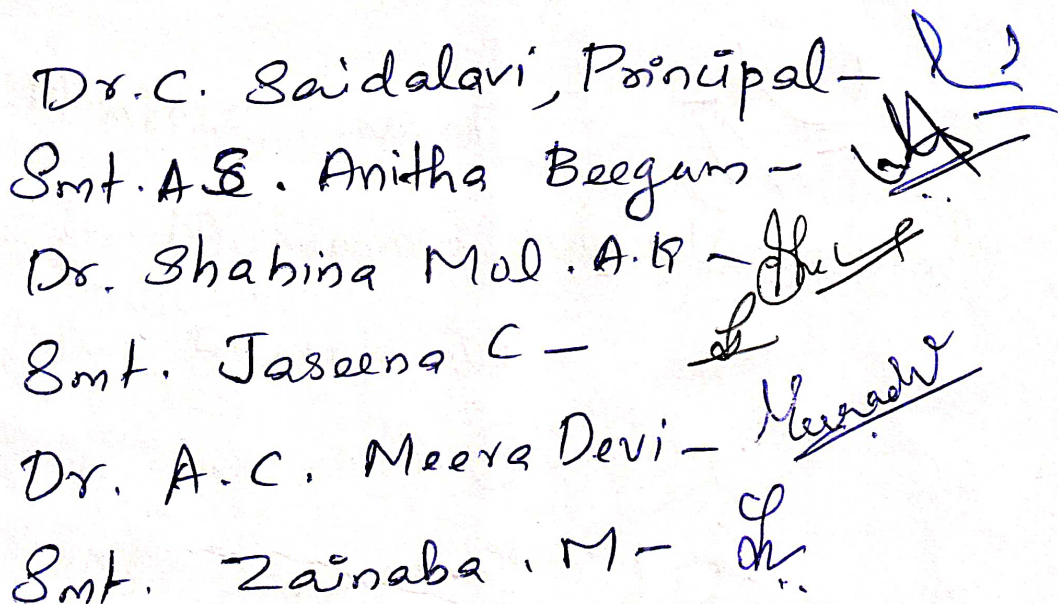 Dr. C. Saidalavi, Principal -
Smt. A S. Anitha Beegum -
Dr. Shahina Mol. A.K -
Smt. Jaseena C -
Dr. A.C. Meera Devi - Meeradevi
Smt. Zainaba. M -